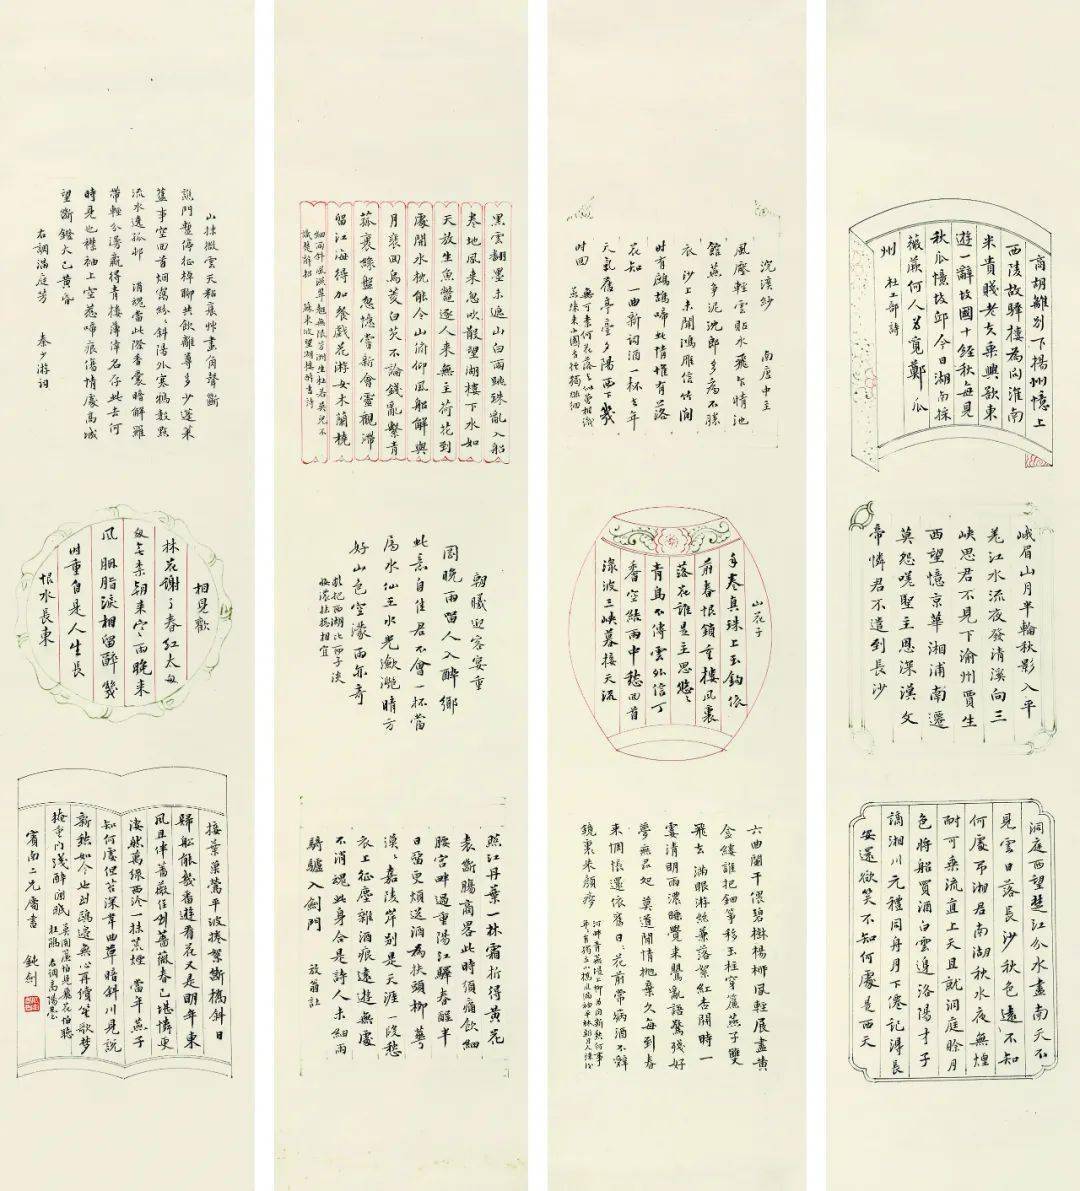 商胡離別下揚州憶上
西陵故驛樓為問淮南
米貴賤老夫乘興欲東
遊一辭故國十經秋每見
秋瓜憶故邱今日湖南採
薇蕨何人為覓鄭瓜
州 杜工部詩
峨眉山月半輪秋影入平
羌江水流夜發清溪向三
峽思君不見下渝州賈生
西望憶京華湘浦南遷
莫怨嗟聖主恩深漢文
帝憐君不遣到長沙
洞庭西望楚江分水盡南天不
見雲日落長沙秋色遠不知
何處弔湘君南湖秋水夜無煙
耐可乘流直上天且就洞庭賒月
色將船買酒白雲邊洛陽才子
謫湘川元禮同舟月下僊記得長
安還欲笑不知何處是西天
浣溪紗 南唐中主
風壓輕雲貼水飛乍晴池
館燕爭泥沈郎多病不勝
衣 沙上未聞鴻雁信竹間
時有鷓鴣啼此情惟有落
花知 一曲新詞酒一杯去年
天氣舊亭臺夕陽西下幾
時回 無可奈何花落去似曾相識
燕歸來小園香徑獨徘徊
山花子
手卷真珠上玉鉤依
前春恨鎖重樓風裏
落花誰是主思悠々
青鳥不傳雲外信丁
香空結雨中愁回首
淥波三峽暮接天流
六曲闌干偎碧樹楊柳風輕展盡黃
金縷誰把鈿箏移玉柱穿簾燕子雙
飛去 滿眼游絲兼落絮紅杏開時一
霎清明雨濃睡覺來鶯亂語驚殘好
夢無尋處 莫道閒情拋棄久每到春
來惆悵還依舊日々花前常病酒不辭
鏡裏朱顏瘦 河畔青蕪堤上柳為問新愁何事
年年有獨立小橋風滿袖平林新月人歸後
黑雲翻墨未遮山白雨跳珠亂入船
卷地風來忽吹散望湖樓下水如
天放生魚鱉逐人來無主荷花到
處開水枕能令山俯仰風船解與
月裵回烏菱白芡不論錢亂繫青
菰裹綠盤忽憶嘗新會靈觀滯
留江海得加餐戲花游女木蘭橈
細雨斜風濕翠翹無限芳洲生杜若吳兒不
識楚辭招 蘇東坡望湖樓醉書詩
朝曦迎客宴重
岡晚雨留人入醉鄉
此意自佳君不會一杯當
屬水仙王水光瀲灩晴方
好山色空濛雨亦奇
欲把西湖比西子淡
粧濃抹總相宜
照江丹葉一林霜折得黃花
更斷腸商略此時須痛飲細
腰宮畔過重陽江驛春醒半
日留更煩送酒為扶頭柳花
漠々嘉陵岸別是天涯一段愁
衣上征塵雜酒痕遠遊無處
不消魂此身合是詩人未細雨
騎驢入劍門 放翁詩
山抹微雲天黏衰艸畫角聲斷
譙門暫停征棹聊共飲離尊多少蓬萊
舊事空回首烟靄紛紛斜陽外寒鴉數點
流水遶孤邨 消魂當此際香囊暗解羅
帶輕分漫贏得青樓薄倖名存此去何
時見也襟袖上空惹啼痕傷情處高城
望斷鐙火已黃昏
右調滿庭芳 秦少游詞
相見歡
林花謝了春紅太匆
匆無柰朝來寒雨晚來
風 胭脂淚相留醉幾
時重自是人生長
恨水長東
接葉巢鶯平波捲絮斷橋斜日
歸船能幾番遊看花又是明年東
風且伴薔薇住到薔薇春已堪憐更
淒然萬綠西泠一抹荒煙 當年燕子
知何處但苔深韋曲草暗斜川見說
新愁如今也到鷗邊無心再續笙歌夢
掩重門淺醉閒眠 莫開簾怕見飛花怕聽
杜鵑 右調高陽臺
賓南二兄屬書 鈍劍